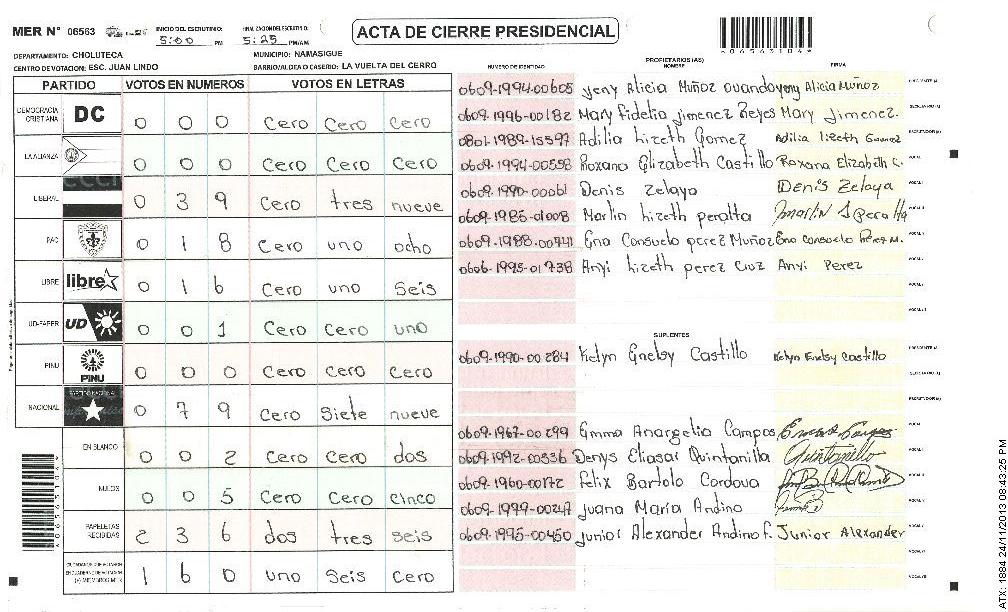 MER Nº 06563
INICIO DEL ESCRUTINIO: 5:00 PM
FINALIZACION DEL ESCRUTINIO: 5:25 PM/AM
ACTA DE CIERRE PRESIDENCIAL
DEPARTAMENTO: CHOLUTECA
MUNICIPIO: NAMASIGUE
CENTRO DE VOTACION: ESC. JUAN LINDO
BARRIO/ALDEA O CASERIO: LA VUELTA DEL CERRO
PARTIDO VOTOS EN NUMEROS VOTOS EN LETRAS
DEMOCRACIA CRISTIANA DC 0 0 0 Cero Cero Cero
LA ALIANZA 0 0 0 Cero Cero Cero
LIBERAL 0 3 9 Cero tres nueve
PAC 0 1 8 Cero uno ocho
LIBRE libre 0 1 6 Cero uno Seis
UD-FAPER UD 0 0 1 Cero Cero uno
PINU PINU 0 0 0 Cero Cero Cero
NACIONAL PARTIDO NACIONAL 0 7 9 Cero Siete nueve
EN BLANCO 0 0 2 Cero Cero dos
NULOS 0 0 5 Cero Cero cinco
PAPELETAS RECIBIDAS 2 3 6 dos tres seis
1 6 0 uno Seis Cero
NUMERO DE IDENTIDAD
PROPIETARIOS (AS)
NOMBRE
FIRMA
0609-1994-00605 Jeny Alicia Muñoz ovando yeny Alicia Muñoz
0609-1996-00182 Mary Fidelia Jimenez Reyes Mary Jimenez.
0801-1989-15597 Adilia Lizeth Gomez Adilia lizeth Gomez
0609-1994-00558 Roxana Elizabeth Castillo Roxana Elizabeth C.
0609-1990-00061 Denis Zelaya DENIS Zelaya
0609-1985-01008 Marlin Lizeth peralta
0609-1988-00741 Ena Consuelo perez Muñoz Ena consuelo Perez M.
0606-1995-01738 Anyi Lizeth perez Cruz Anyi Perez
SUPLENTES
0609-1990-00284 Kelyn Gnelsy Castillo Kelyn Enelsy castillo
0609-1967-00299 Emma Anargelia Campos
0609-1992-00536 Denys Eliasar Quintanilla Quintanilla
0609-1960-00172 Felix Bartolo Cordova
0609-1999-00247 Juana María Andino
0609-1995-00450 Junior Alexander Andino f. Junior Alexander
ATX: 1884 24/11/2013 08:43:25 PM